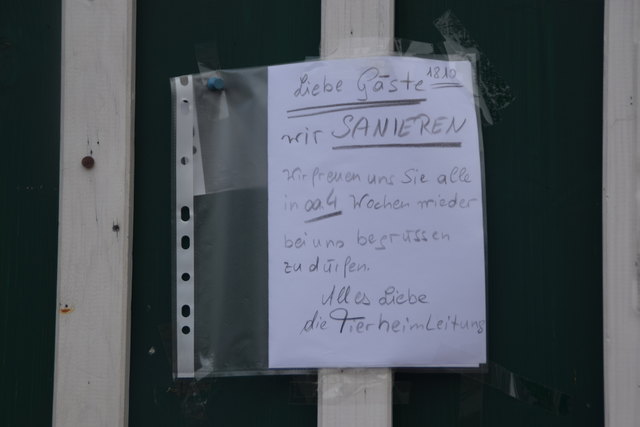 Liebe Gäste 18.10
wir SANIEREN
Wir freuen uns Sie alle
in ca. 4 Wochen wieder
bei uns begrüssen
zu dürfen.
Alles Liebe
die Tierheimleitung